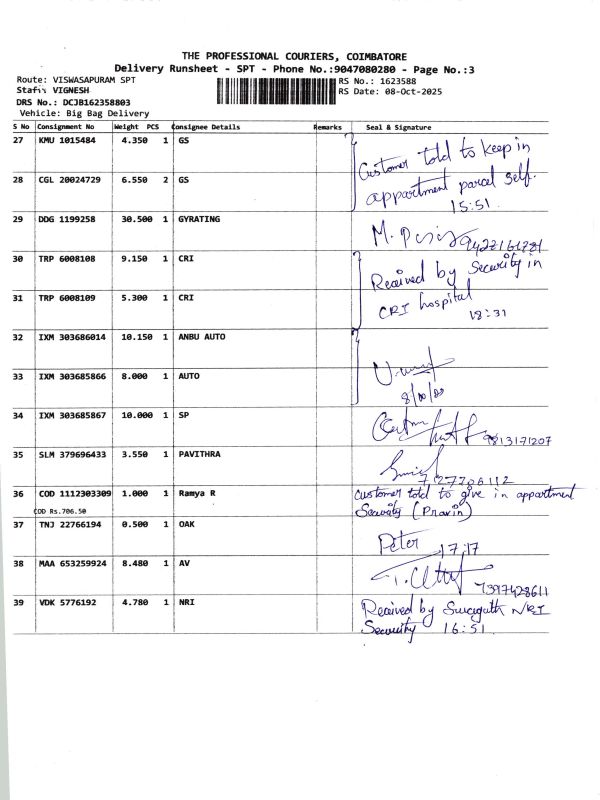 THE PROFESSIONAL COURIERS, COIMBATORE
Delivery Runsheet - SPT - Phone No.:9047080280 - Page No.:3
Route: VISWASAPURAM SPT
RS No.: 1623588
Staff: VIGNESH
RS Date: 08-Oct-2025
DRS No.: DCJB162358803
Vehicle: Big Bag Delivery
S No Consignment No Weight PCS Consignee Details Remarks Seal & Signature
27 KMU 1015484 4.350 1 GS
Customer told to keep in
28 CGL 20024729 6.550 2 GS
appartment parcel self.
15:51
29 DDG 1199258 30.500 1 GYRATING
M.
30 TRP 6008108 9.150 1 CRI
Received by Security in
31 TRP 6008109 5.300 1 CRI
CRI hospital
18:31
32 IXM 303686014 10.150 1 ANBU AUTO
33 IXM 303685866 8.000 1 AUTO
34 IXM 303685867 10.000 1 SP
9813171207
35 SLM 379696433 3.550 1 PAVITHRA
36 COD 1112303309 1.000 1 Ramya R
customer told to give in appartment
COD Rs.706.50
Security (Pravin)
37 TNJ 22766194 0.500 1 OAK
Peter 17:17
38 MAA 653259924 8.480 1 AV
7397428611
39 VDK 5776192 4.780 1 NRI
Received by NRI
Security 16:51